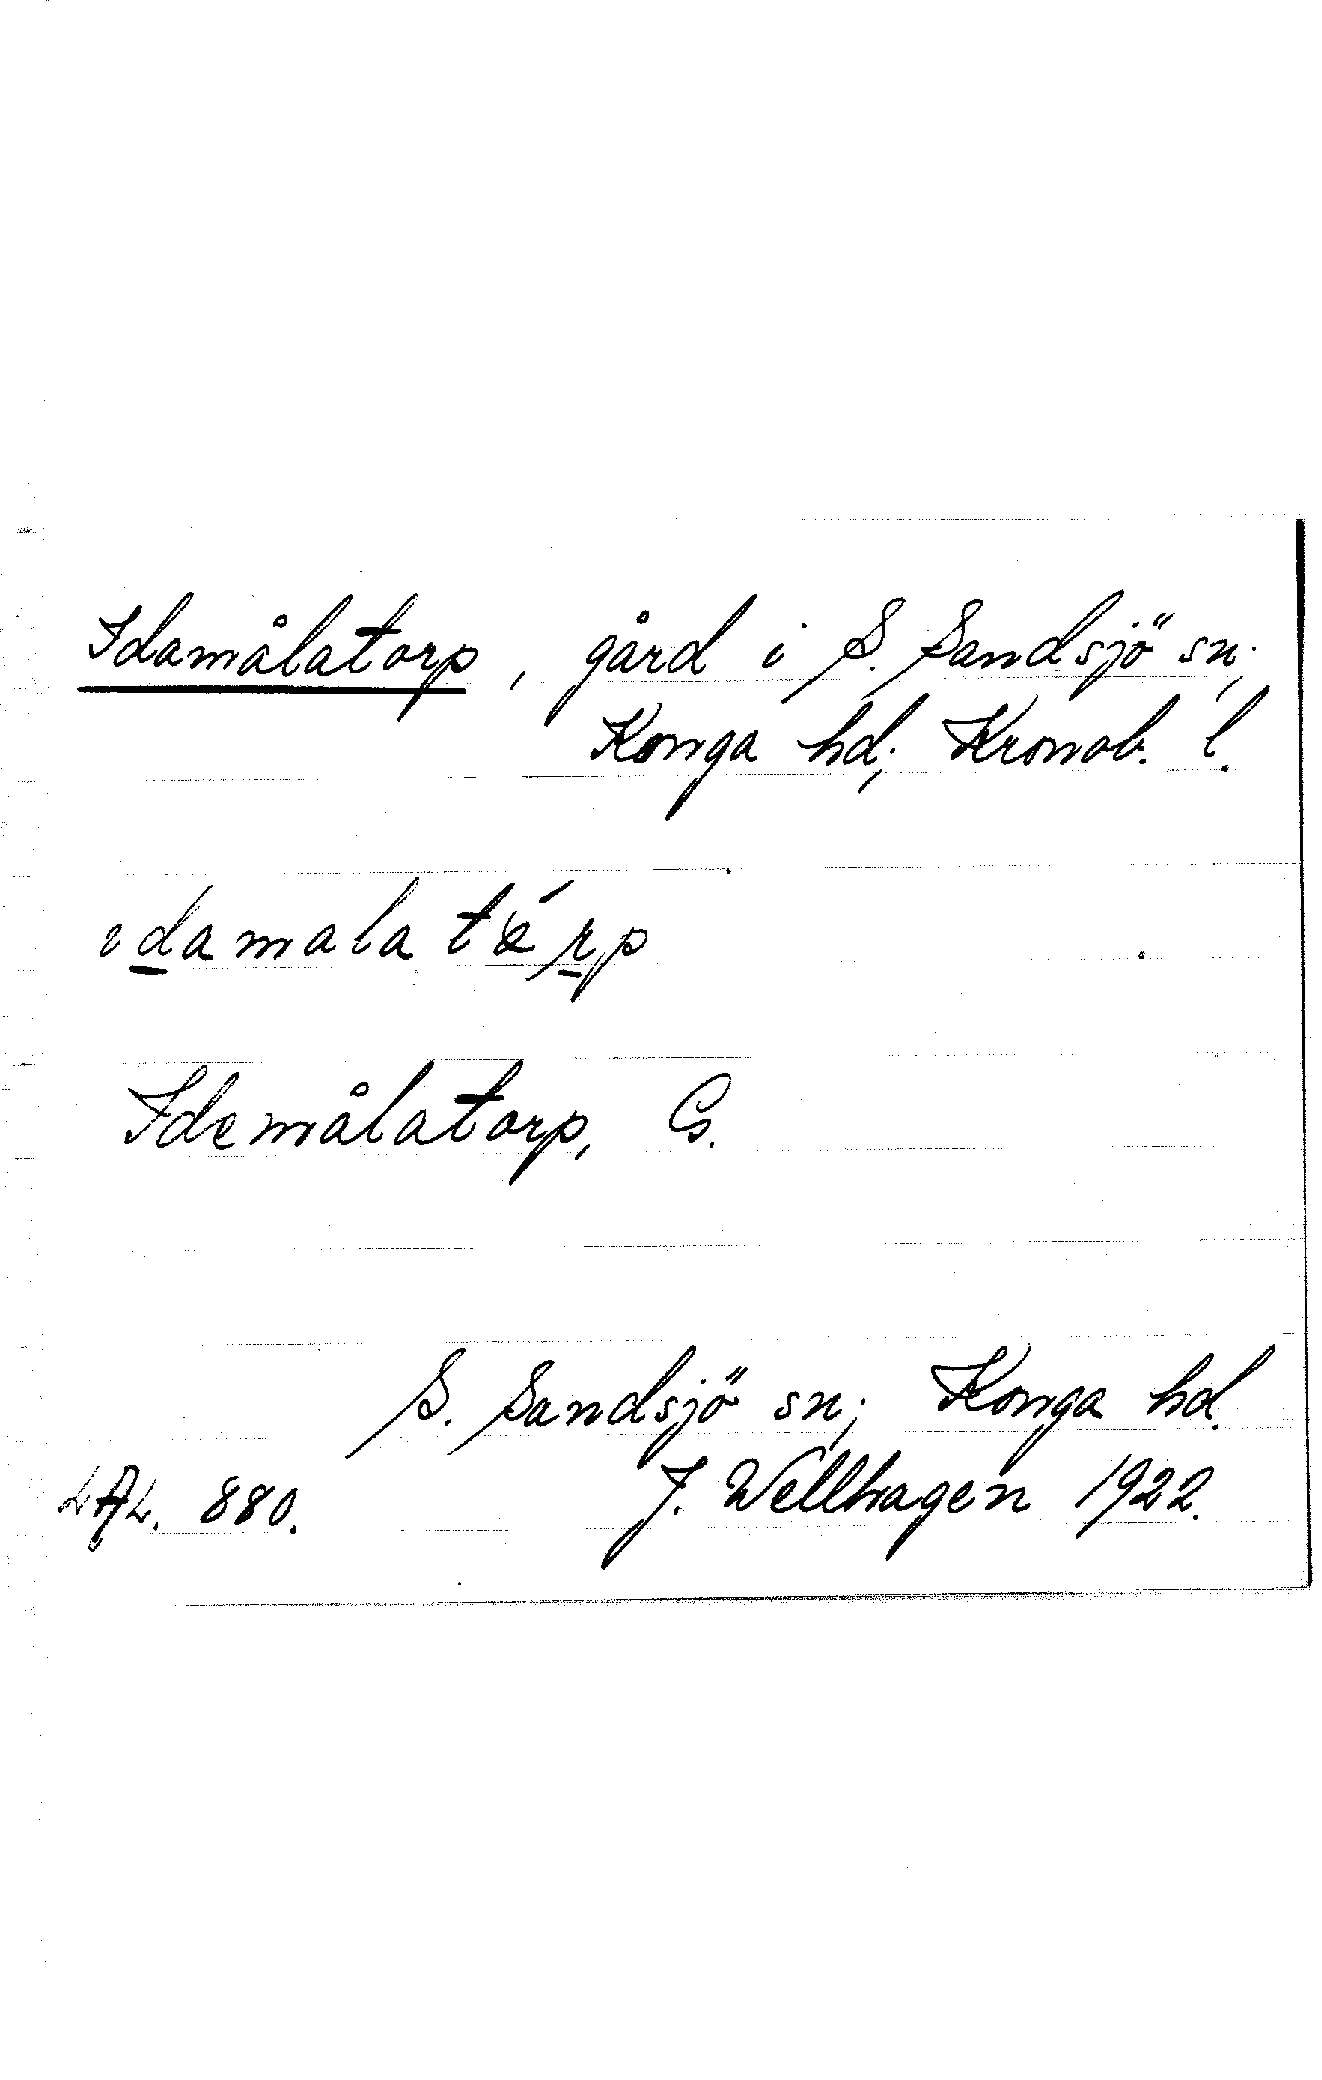 Idamålatorp, gård i S. Sandsjö sn;
Konga hd; Kronob. l.
idamala térp
Idemålatorp, Gs.
S. Sandsjö sn; Konga hd.
LAL. 880. J. Wellhagen 1922.